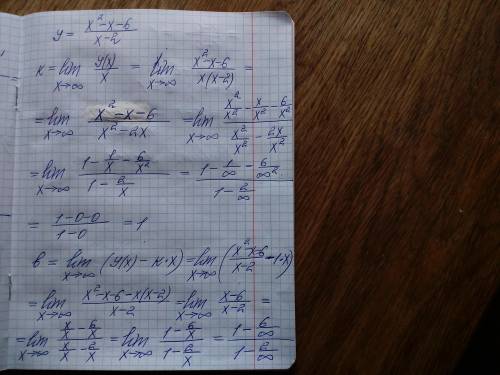 y = (x² - x - 6)/(x - 2)
k = lim x→∞ y(x)/x = lim x→∞ (x² - x - 6)/(x(x-2)) =
= lim x→∞ (x² - x - 6)/(x² - 2x) = lim x→∞ (x²/x² - x/x² - 6/x²)/(x²/x² - 2x/x²)
= lim x→∞ (1 - 1/x - 6/x²)/(1 - 2/x) = (1 - 1/∞ - 6/∞²)/(1 - 2/∞)
= (1-0-0)/(1-0) = 1
b = lim x→∞ (y(x) - k·x) = lim x→∞ ((x² - x - 6)/(x-2) - 1·x)
= lim x→∞ (x² - x - 6 - x(x-2))/(x-2) = lim x→∞ (x-6)/(x-2) =
= lim x→∞ (x/x - 6/x)/(x/x - 2/x) = lim x→∞ (1 - 6/x)/(1 - 2/x) = (1 - 6/∞)/(1 - 2/∞)